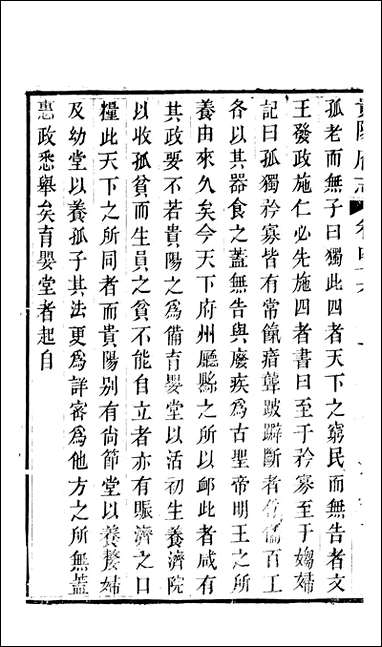 貴陽府志 卷四十六
孤老而無子曰獨此四者天下之窮民而無告者文
王發政施仁必先施四者書曰至于矜寡至于媰婦
記曰孤獨矜寡皆有常餼瘖聾跛躃斷者侏儒百工
各以其器食之蓋無告與廢疾爲古聖帝明王之所
養由來久矣今天下府州廳縣之所以卹此者咸有
其政要不若貴陽之爲備育嬰堂以活初生養濟院
以收孤貧而生員之貧不能自立者亦有賑濟之口
糧此天下之所同者而貴陽別有尚節堂以養嫠婦
及幼堂以養孤子其法更爲詳審爲他方之所無蓋
惠政悉舉矣育嬰堂者起自